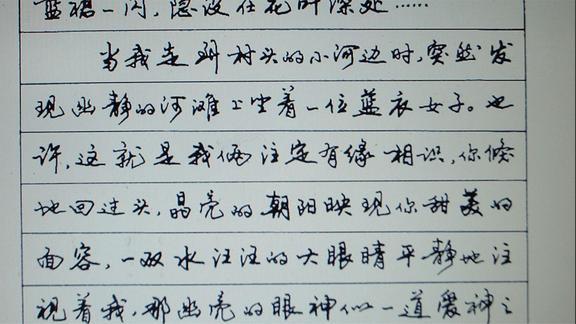 蓝裙一闪,隐没在花叶深处……
当我走到村头的小河边时,突然发
现幽静的河滩上坐着一位蓝衣女子。也
许,这就是我俩注定有缘相识,你倏
地回过头,晶亮的朝阳映现你甜美的
面容,一双水汪汪的大眼睛平静地注
视着我,那幽亮的眼神似一道爱神之